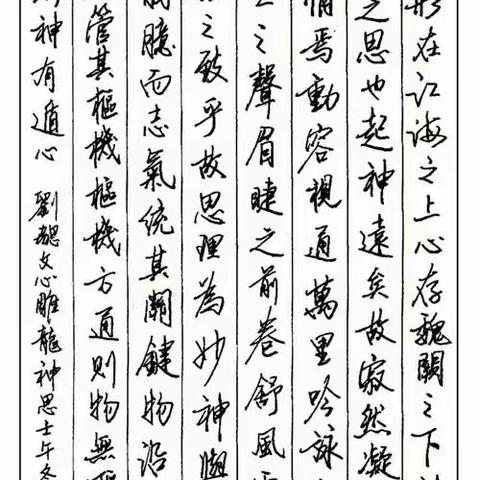 形在江海之上心存魏闕之下
之思也起神遠矣故寂然凝
悄焉動容視通萬里吟詠
之聲眉睫之前卷舒風
之致乎故思理為妙神與
胸臆而志氣統其關鍵物沿
管其樞機樞機方通則物無
神有遁心 劉勰文心雕龍神思壬午冬